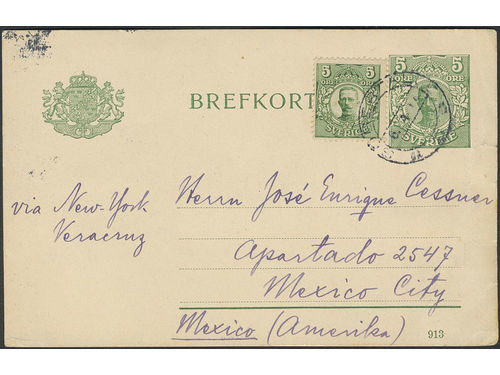 5 5
SVERIGE
5 5
ÖRE ÖRE
SVERIGE
BREFKORT
via New-York
Veracruz
Herrn José Enrique Cessner
Apartado 2547
Mexico City
Mexico (Amerika)
913